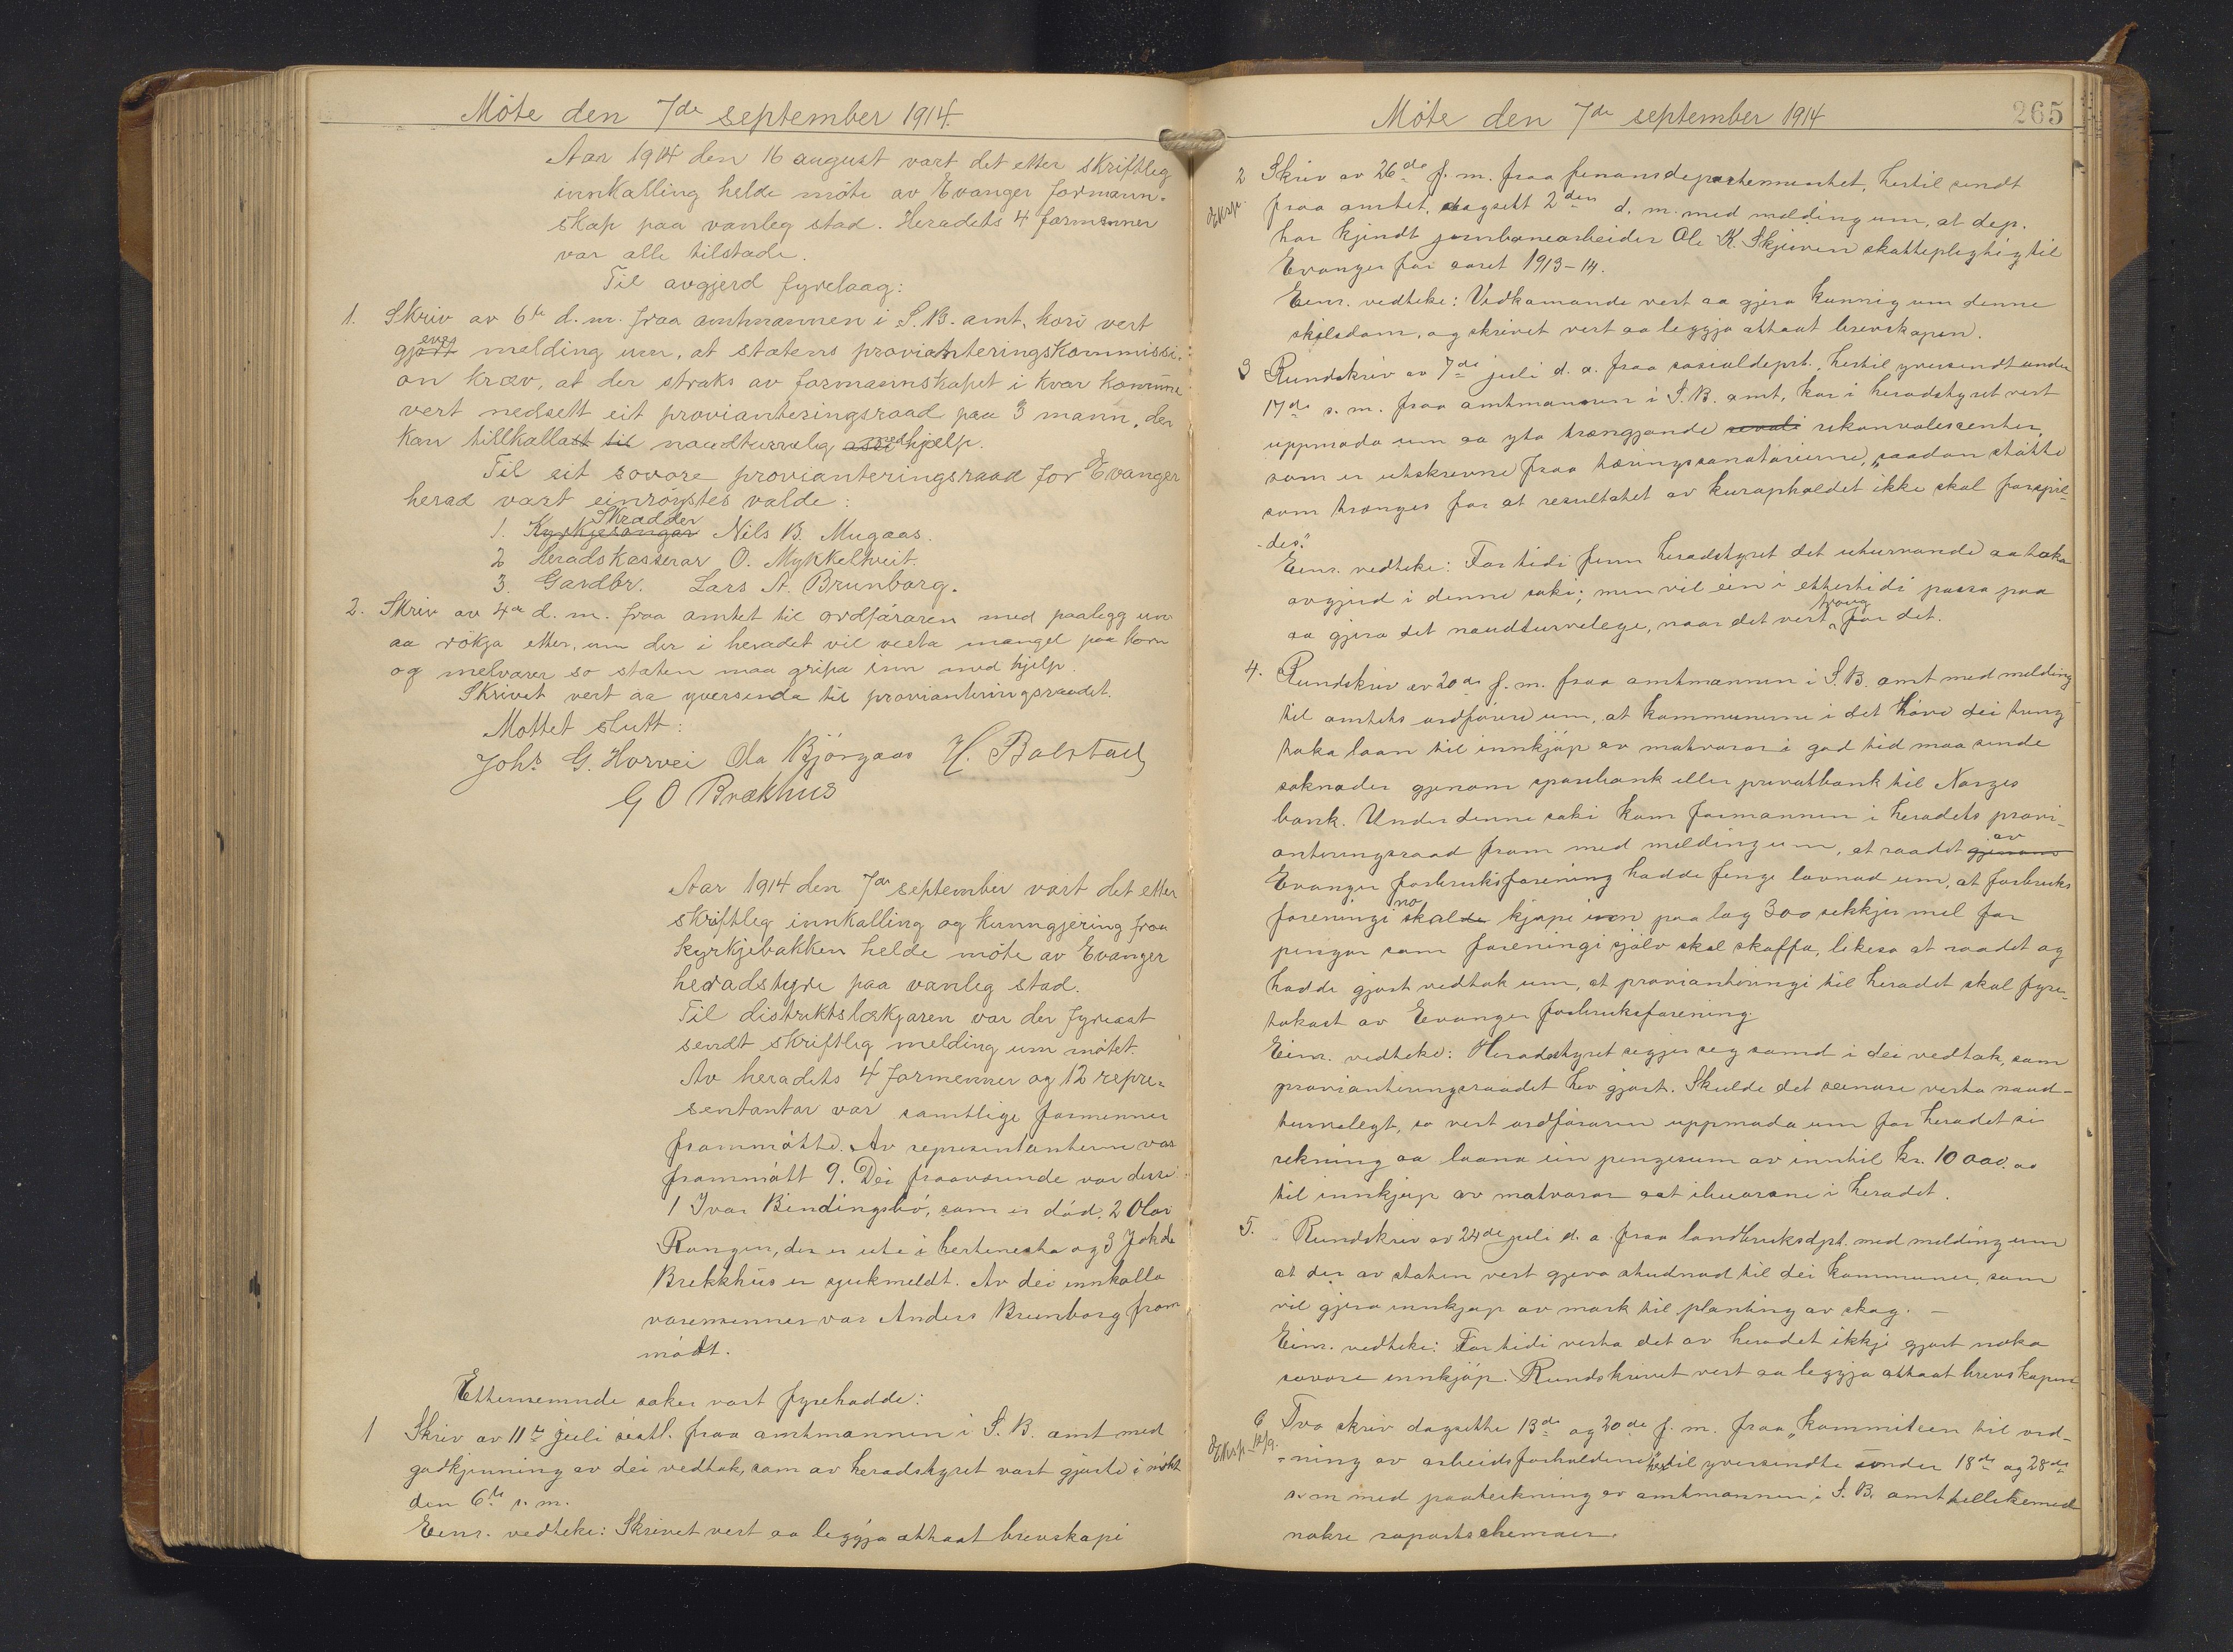 Möte den 7de september 1914.
Aar 1914 den 16 august vart det etter skriftleg
innkalling helde möte av Evanger formann-
skap paa vanleg stad. Heradets 4 formenner
var alle tilstade.
Til avgjerd fyrelaag:
1. Skriv av 6te d. m. fraa amtmannen i S. B. amt, kori vert
gjeva melding um, at statens provianteringskommissi-
on kræv, at der straks av formannskapet i kvar komune
vert nedsett eit provianteringsraad paa 3 mann, der
kan tillkallast til naudturvuleg med hjelp.
Til eit sovore provianteringsraad for Evanger
herad vart einröystes valde:
1. Kyrkjesongar Skrædder Nils B. Mugaas.
2 Heradskasserar O. Mykkeltveit.
3. Gardbr. Lars A. Brunborg.
2. Skriv av 4de d. m. fraa amtet til ordföraren med paalegg um
aa rökja etter, um der i heradet vil verta mangel paa korn
og melvarer so staten maa gripa inn med hjelp.
Skrivet vert aa yversenda til provianteringsraadet.
Mottet slutt:
Johs G. Horvei Ola Björgaas H. Bolstad
G O Brækhus
Aar 1914 den 7de september vart det etter
skriftleg innkalling og kunngjering fraa
kyrkjebakken helde möte av Evanger
heradstyre paa vanleg stad.
Til distriktslækjaren var der fyreaat
sendt skriftleg melding um mötet.
Av heradets 4 formenner og 12 repre-
sentantar var samtlige formenner
frammötte. Av representantern var
frammött 9. Dei fraaverande var desse
1 Ivar Bindingsbö, som er död, 2 Olav
Rongen, der er ute i hertenesta og 3 Jak de
Brekkhus er sjukmeldt. Av dei innkalla
varemenner var Anders Brunborg fram
mödt.
Etternemnde saker vart fyrehadde:
1 Skriv av 11te juli sistl. fraa amtmannen i S. B. amt med
godkjenning av dei vedtak, som av heradstyret vart gjorde i mötet
den 6te s. m.
Einr. vedteke: Skrivet vert aa leggja attaat brevskapi
Möte den 7de september 1914
265
2 Skriv av 26de f. m. fraa finansdepartementet, hertil sendt
Eksp.
fraa amtet, dagsett 2den d. m. med melding um, at dep.
har kjendt jernbanearbeider Ole K. Skjerven skattepligtig til
Evanger for aaret 1913-14.
Einr. vedteke: Vedkomande vert aa gjera kunnig um denne
skilsdom, og skrivet vert aa leggja attaat brevskapen.
3 Rundskriv av 7de juli d. a. fraa sosialdeprt., hertil yversendt under
17de s. m. fraa amtmannen i S. B. amt, kor i heradstyret vert
uppmoda um aa yta trængjande revali rekonvalescenter,
som er utskrevne fraa tæringssanatorierne, "saadan stötte
som trænges for at resultatet av kuropholdet ikke skal forspil-
des."
Einr. vedteke: For tidi finn heradstyret det uturvande aa taka
avgjerd i denne saki; men vil ein i ettertidi passa paa
aa gjera det naudturvelege, naar det vert trong for det.
4. Rundskriv av 20de f. m. fraa amtmannen i S. B. amt med melding
til amtets ordförere um, at kommunerne i det höve dei trung
taka laan til innkjöp av matvaror i god tid maa sende
söknader gjenom sparebank eller privatbank til Norges
bank. Under denne saki kom formannen i heradets provi-
anteringsraad fram med melding um, at raadet gjenom av
Evanger forbruksforening hadde fenge lovnad um, at forbruks
foreningi no skal kjöpe inn paa lag 300 sekkjer mel for
pengar som foreningi sjölv skal skaffa, likeso at raadet og
hadde gjort vedtak um, at provianteringi til heradet skal fyre-
takast av Evanger forbruksforening.
Einr. vedteke: Heradstyret segjer seg samd i dei vedtak, som
provianteringsraadet hev gjort. Skulde det seinare verta naud-
turvelegt, so vert ordföraren uppmoda um for heradet si
rekning aa laana ein pengesum av inntil kr. 10 000.00
til innkjöp av matvaror aat ibuarane i heradet.
5. Rundskriv av 24de juli d. a. fraa landbruksdpt. med melding um
at der av staten vert gjeva studnad til dei kommuner, som
vil gjera innkjöp av mark til planting av skog. —
Einr. vedteke: For tidi verta det av heradet ikkje gjort noka
sovore innkjöp. Rundskrivet vert aa leggja attaat brevskapen.
6 Tvo skriv dagsette 13de og 20de f. m. fraa "kommiteen til ord-
Eksp. 12/9.
-ning av arbeidsforholdene" hertil yversendte under 18de og 28de
s. m med paateikning av amtmannen i S. B. amt tillikemed
nokre raportschemaer.